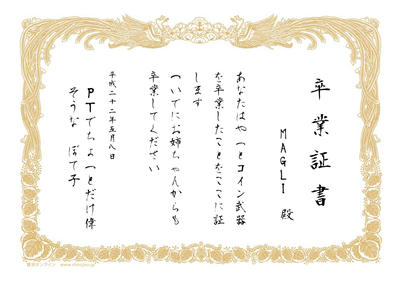 卒業証書
MAGLI 殿
あなたはやっとコイン武器
を卒業したことをここに証
します
ついでにお姉ちゃんからも
卒業してください
平成二十二年五月八日
PTでちょっとだけ偉
そうな ぽて子